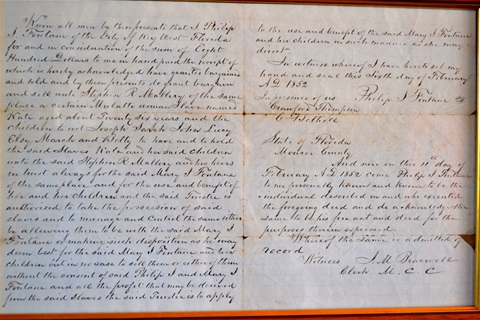 Know all men by these presents that I Philip
J Fontane of the City of Key West Florida
for and in consideration of the sum of Eight
Hundred Dollars to me in hand paid the receipt of
which is hereby acknowledged have granted bargained
and sold and by these presents do grant bargain
and sell unto Stephen R Mallory of the same
place a certain Mulatto woman Slave named
Kate aged about Twenty Six years and the
children to wit Joseph Sarah John Lucy
and to have and to hold
the said Slaves Kate and her said children
unto the said Stephen R Mallory and his heirs
in trust always for the said Mary J Fontane
of the same place and for the use and benefit of
her and her children and the said Trustee is
authorized to take the possession of said
slaves and to manage and control the same either
by allowing them to be with the said Mary J
Fontane or making such disposition as he may
deem best for the said Mary J Fontane and her
children but in no case to sell them or either of them
without the consent of said Philip J and Mary J
Fontane and all the profit that may be derived
from the said Slaves the said Trustee is to apply
to the use and benefit of the said Mary J Fontane
and her children in such manner as she may
direct
In witness whereof I have hereto set my
hand and seal this day of February
A.D. 1852
In presence of us Philip J Fontane
State of Florida
Monroe County
And now on this 10th day of
February A.D. 1852 came Philip J Fontane
to me personally known and known to be the
individual described in and who executed
the foregoing deed and he acknowledged the
same to be his free act and deed for the
purposes therein expressed
Whereof the same is admitted of
record
Witness
Clerk M. C. C